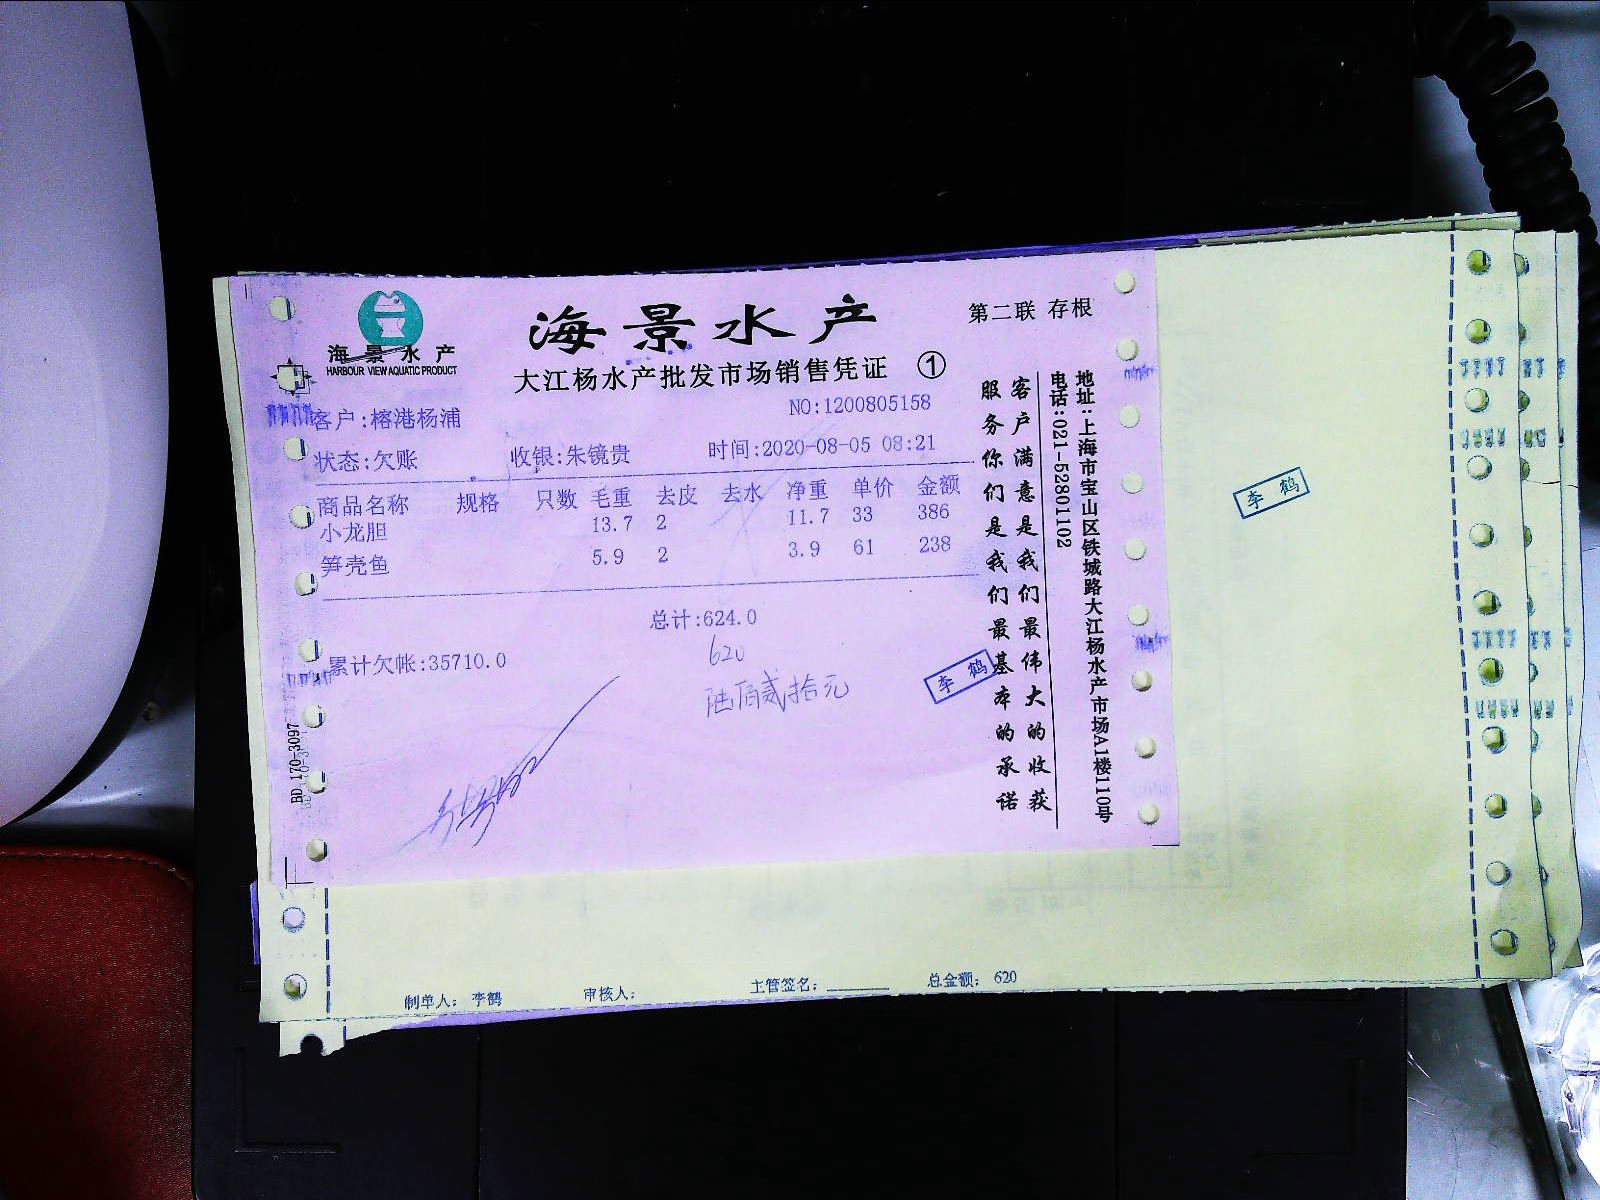 海景水产
HARBOUR VIEW AQUATIC PRODUCT
海景水产
第二联 存根
大江杨水产批发市场销售凭证 ①
NO:1200805158
客户:榕港杨浦
状态:欠账 收银:朱镜贵 时间:2020-08-05 08:21
商品名称 规格 只数 毛重 去皮 去水 净重 单价 金额
小龙胆 13.7 2 11.7 33 386
笋壳鱼 5.9 2 3.9 61 238
总计:624.0
累计欠帐:35710.0
620
陆佰贰拾元
李鹤
客户满意是我们最伟大的收获
服务你们是我们最基本的承诺
地址:上海市宝山区铁城路大江杨水产市场A1楼110号
电话:021-52801102
BD 170-3097
李鹤
制单人: 李鹤 审核人: 主管签名: 总金额: 620